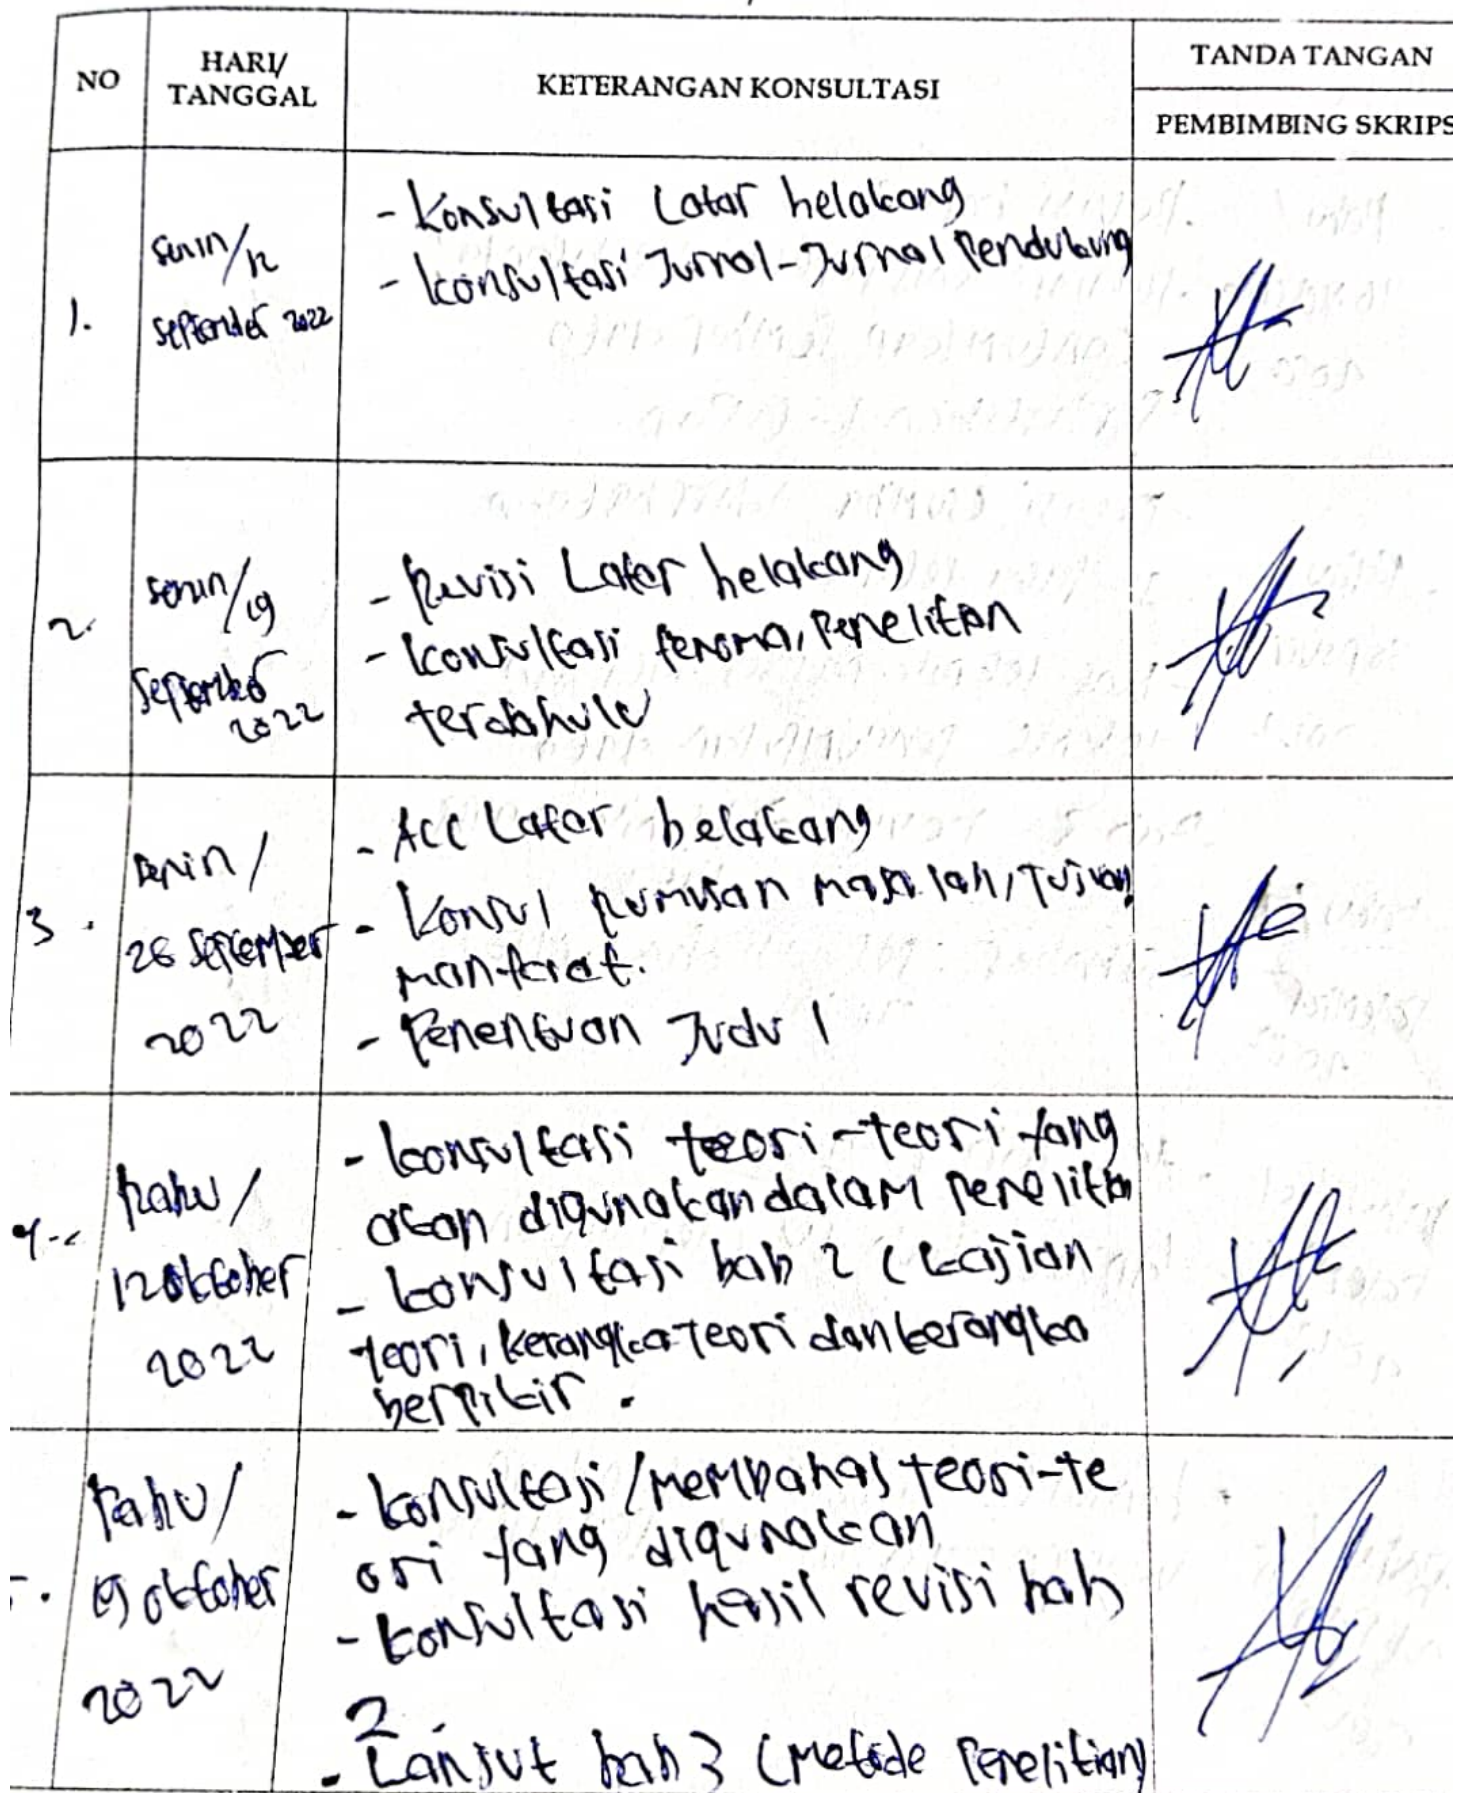 NO
HARI/
TANGGAL
KETERANGAN KONSULTASI
TANDA TANGAN
PEMBIMBING SKRIPS
1.
Senin/12
September 2022
- Konsultasi Latar belakang
- Konsultasi Jurnal-Jurnal Pendukung
2.
Senin/19
September
2022
- Revisi Latar belakang
- Konsultasi fenoma, Penelitan
terdahulu
3.
Senin/
26 September
2022
- ACC Latar belakang
- Konsul Rumusan masalah, Tujuan
manfaat.
- Penentuan Judul
4.
Rabu/
12 oktober
2022
- konsultasi teori-teori yang
akan digunakan dalam Penelitian
- konsultasi bab 2 (kajian
teori, kerangka teori dan kerangka
berpikir.
Rabu/
19 oktober
2022
- konsultasi/membahas teori-te
ori yang digunakan
- konsultasi hasil revisi bab
2.
- Lanjut bab 3 (Metode Penelitian)